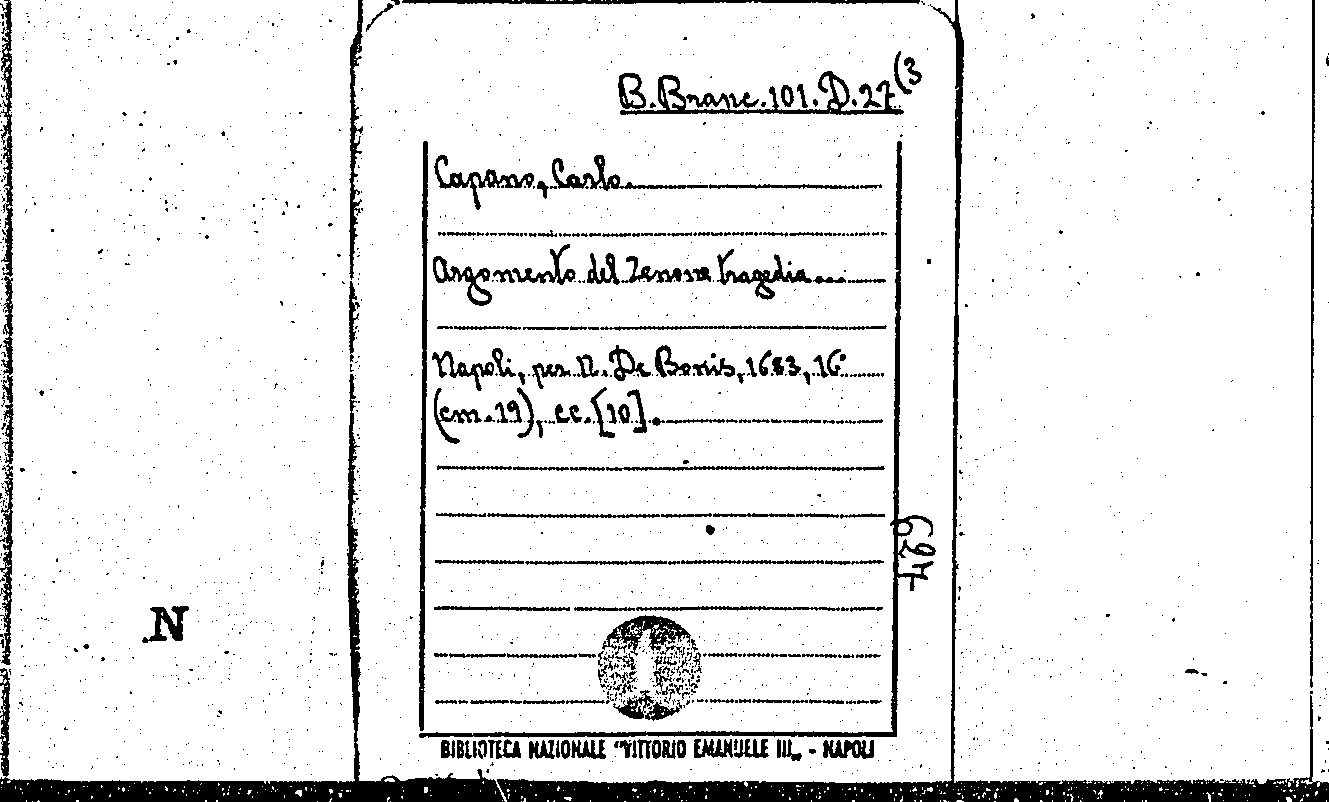 B. Branc. 101. D. 27 (3
Capano, Carlo.
Argomento del Zenone tragedia...
Napoli, per N. De Bonis, 1683, 16°
(cm. 19), cc. [10].
694
N
BIBLIOTECA NAZIONALE "VITTORIO EMANUELE III„ - NAPOLI